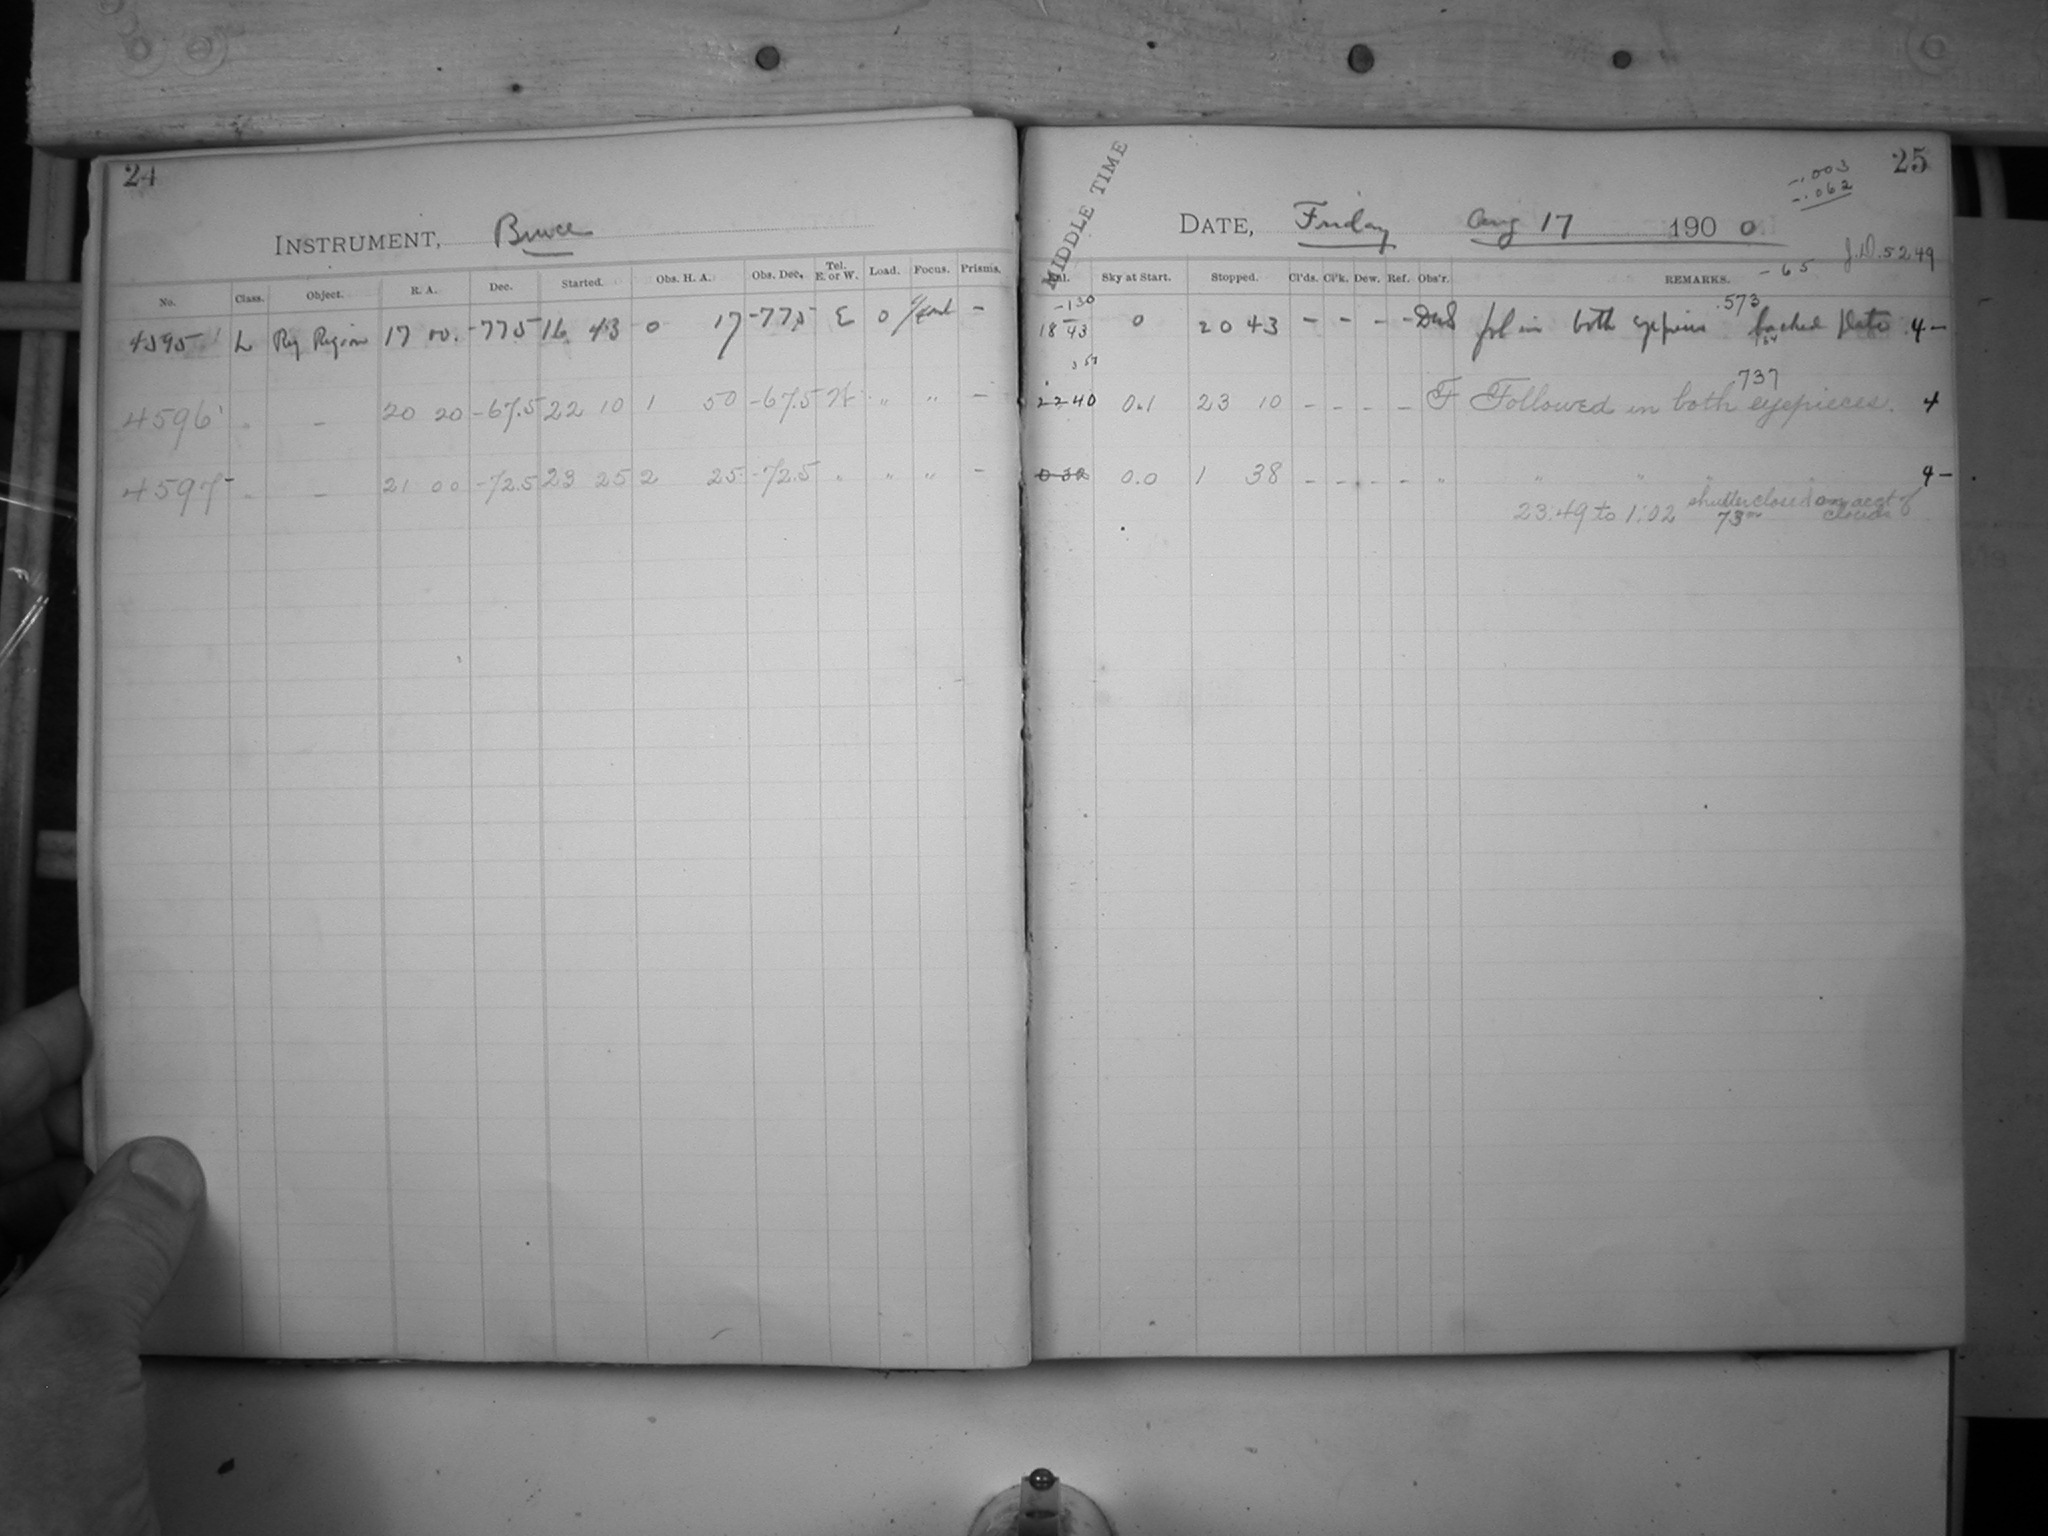 24
INSTRUMENT, Bruce
No. Class. Object. R. A. Dec. Started. Obs. H. A. Obs. Dec. Tel. E. or W. Load. Focus. Prisms.
4595 L Reg Region 17 00. -77.5 16 43 0 17 -77.5 E 0 -
4596 " - 20 20 -67.5 22 10 1 50 -67.5 W " " -
4597 " - 21 00 -72.5 23 25 2 25 -72.5 " " " -
MIDDLE TIME
25
-.003
-.062
DATE, Friday Aug 17 1900
J.D. 5249
-65
Sky at Start. Stopped. Cl'ds. Cl'k. Dew. Ref. Obs'r. REMARKS.
-130
.573
18 43 0 20 43 - - - - fol in both eyepieces backed plate 4-
737
22 40 0.1 23 10 - - - - F Followed in both eyepieces. 4
0 32 0.0 1 38 - - - - " " " " 4-
23:49 to 1:02 shutter closed on acct of
73m clouds